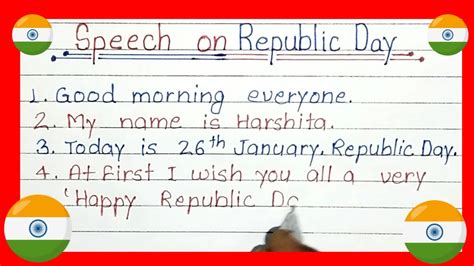 Speech on Republic Day
1. Good morning everyone.
2. My name is Harshita.
3. Today is 26th January, Republic Day.
4. At first I wish you all a very
'Happy Republic Da